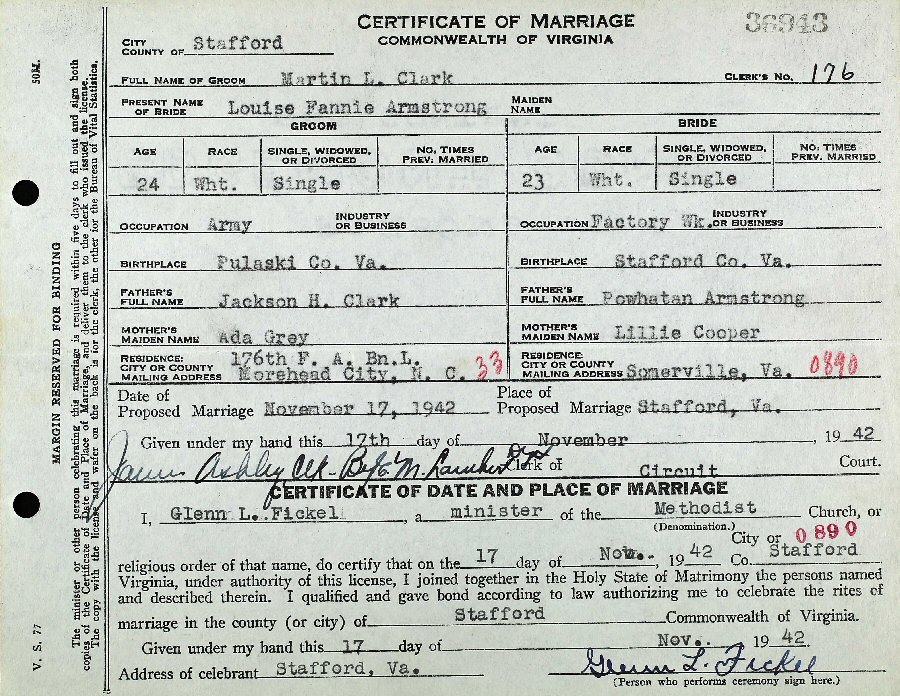 CERTIFICATE OF MARRIAGE
COMMONWEALTH OF VIRGINIA
36943
CITY
COUNTY OF Stafford
FULL NAME OF GROOM Martin L. Clark CLERK'S NO. 176
PRESENT NAME OF BRIDE Louise Fannie Armstrong MAIDEN NAME
GROOM BRIDE
AGE RACE SINGLE, WIDOWED, OR DIVORCED NO. TIMES PREV. MARRIED AGE RACE SINGLE, WIDOWED, OR DIVORCED NO. TIMES PREV. MARRIED
24 Wht. Single 23 Wht. Single
OCCUPATION Army INDUSTRY OR BUSINESS OCCUPATION Factory Wk. INDUSTRY OR BUSINESS
BIRTHPLACE Pulaski Co. Va. BIRTHPLACE Stafford Co. Va.
FATHER'S FULL NAME Jackson H. Clark FATHER'S FULL NAME Powhatan Armstrong
MOTHER'S MAIDEN NAME Ada Grey MOTHER'S MAIDEN NAME Lillie Cooper
RESIDENCE: 176th F. A. Bn.L. RESIDENCE:
CITY OR COUNTY CITY OR COUNTY
MAILING ADDRESS Morehead City, N. C. 33 MAILING ADDRESS Somerville, Va. 0890
Date of Place of
Proposed Marriage November 17, 1942 Proposed Marriage Stafford, Va.
Given under my hand this 17th day of November, 1942
James Ashby Clk - By Clerk of Circuit Court.
CERTIFICATE OF DATE AND PLACE OF MARRIAGE
I, Glenn L. Fickel, a minister of the Methodist Church, or
(Denomination.)
City or 0890
religious order of that name, do certify that on the 17 day of Nov., 1942 Co. Stafford
Virginia, under authority of this license, I joined together in the Holy State of Matrimony the persons named
and described therein. I qualified and gave bond according to law authorizing me to celebrate the rites of
marriage in the county (or city) of Stafford Commonwealth of Virginia.
Given under my hand this 17 day of Nov. 1942
Address of celebrant Stafford, Va. Glenn L. Fickel
(Person who performs ceremony sign here.)
V. S. 77 50M.
MARGIN RESERVED FOR BINDING
The minister or other person celebrating this marriage is required within five days to fill out and sign both
copies of the Certificate of Date and Place of Marriage, and deliver them to the clerk who issued the license.
The copy with the license and wafer on the back is for the clerk, the other for the Bureau of Vital Statistics.